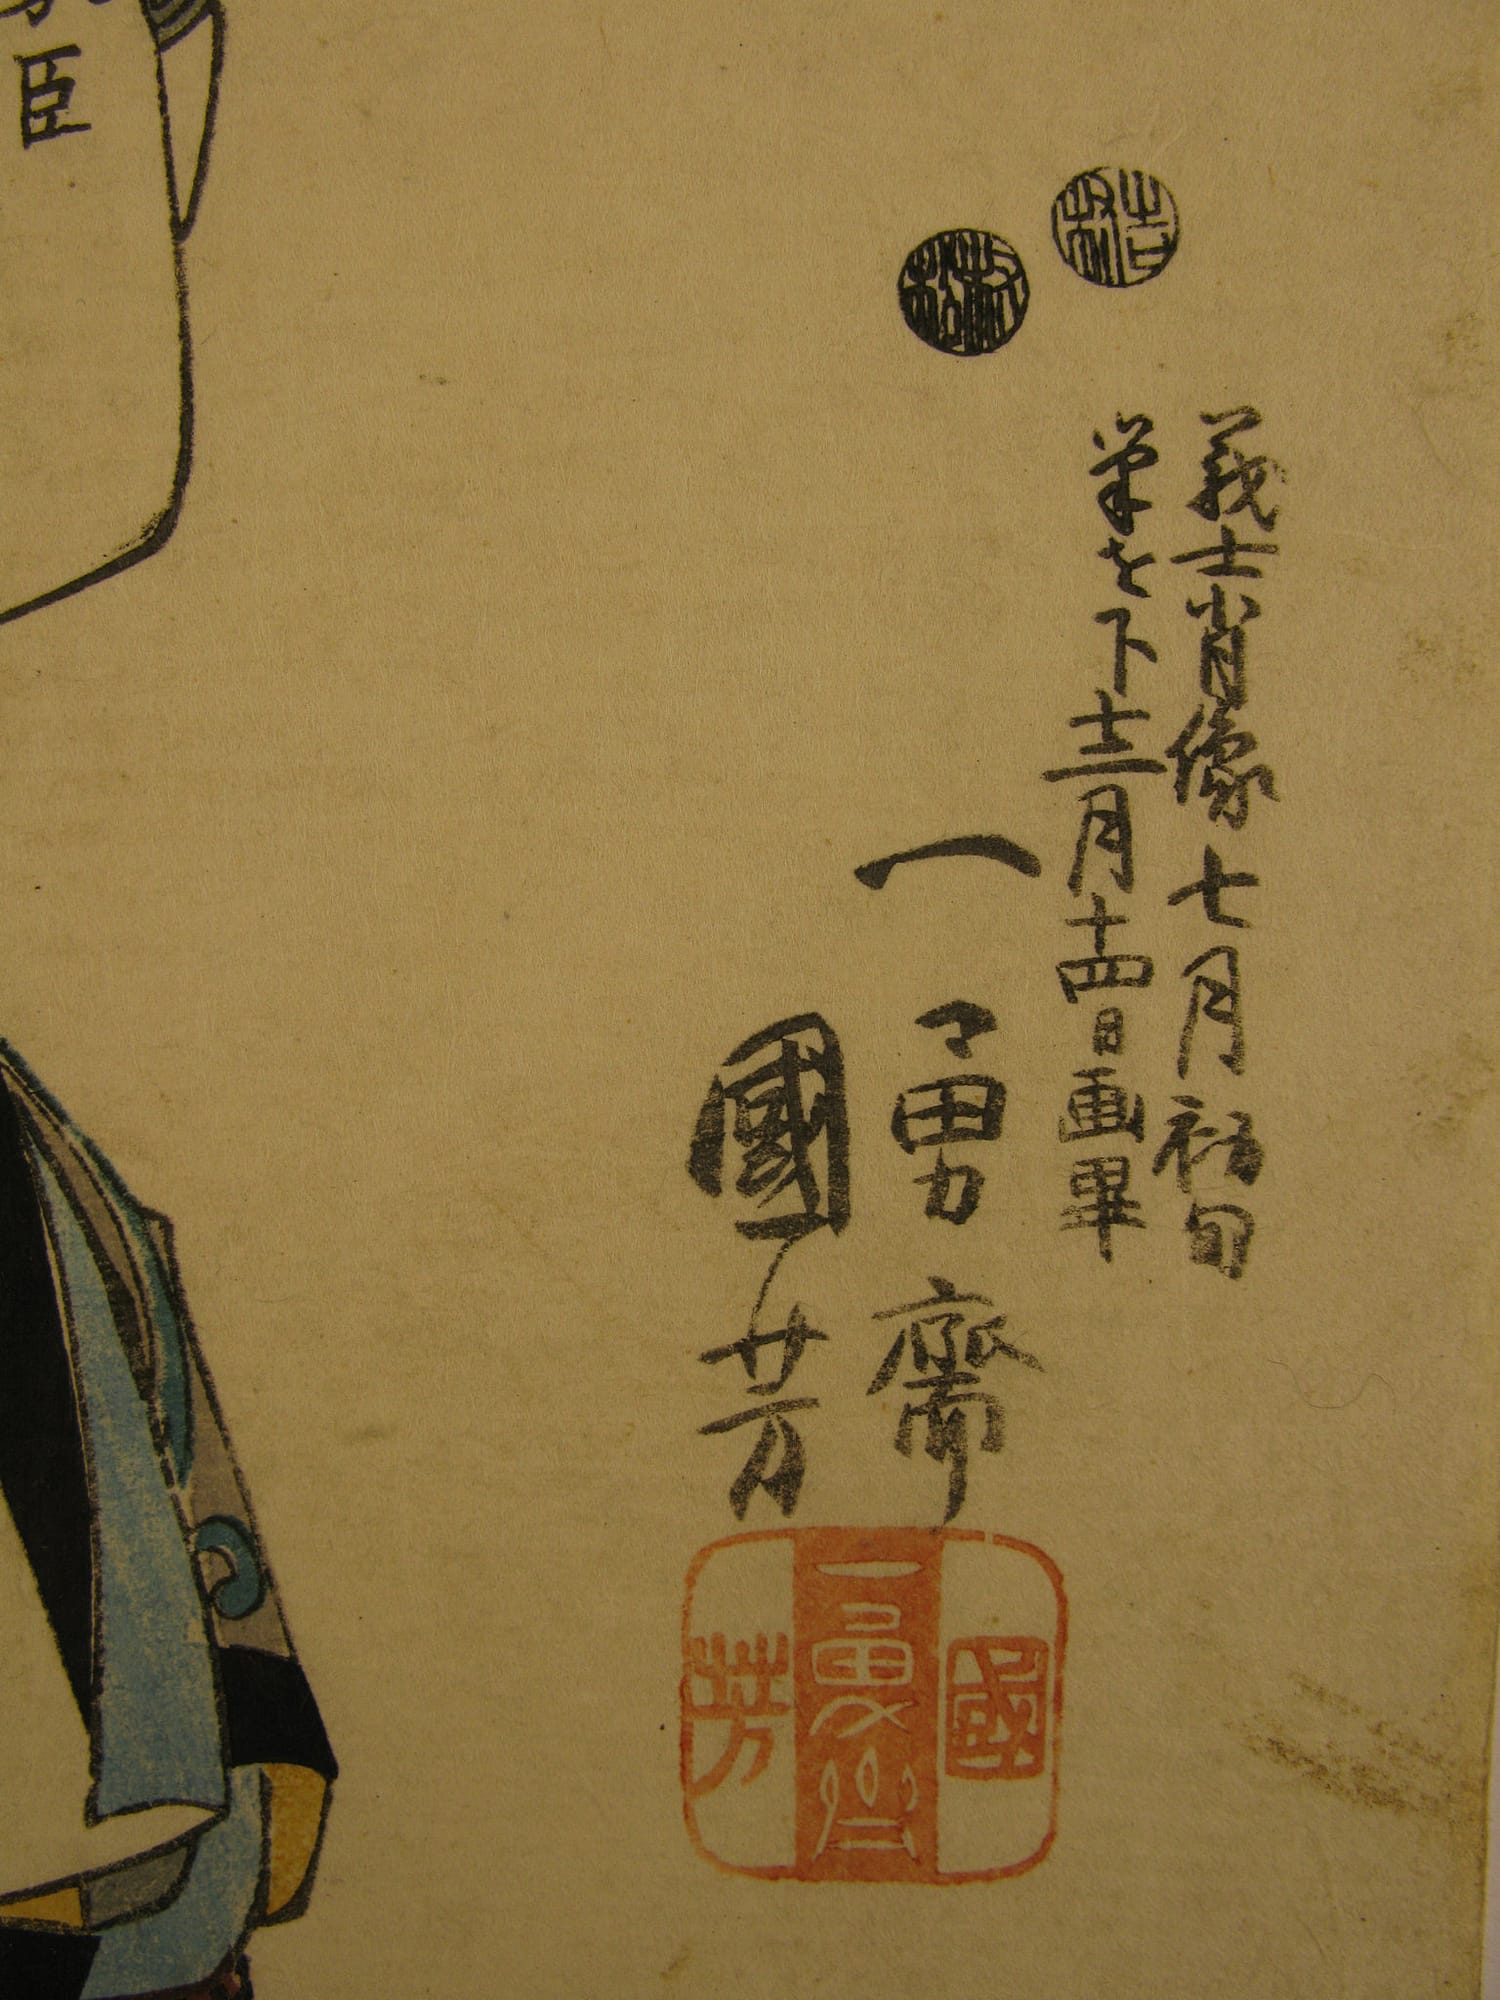 義士肖像七月初旬
筆を下十二月十四日画畢
一勇齋
國芳
國
一勇齋
芳
臣